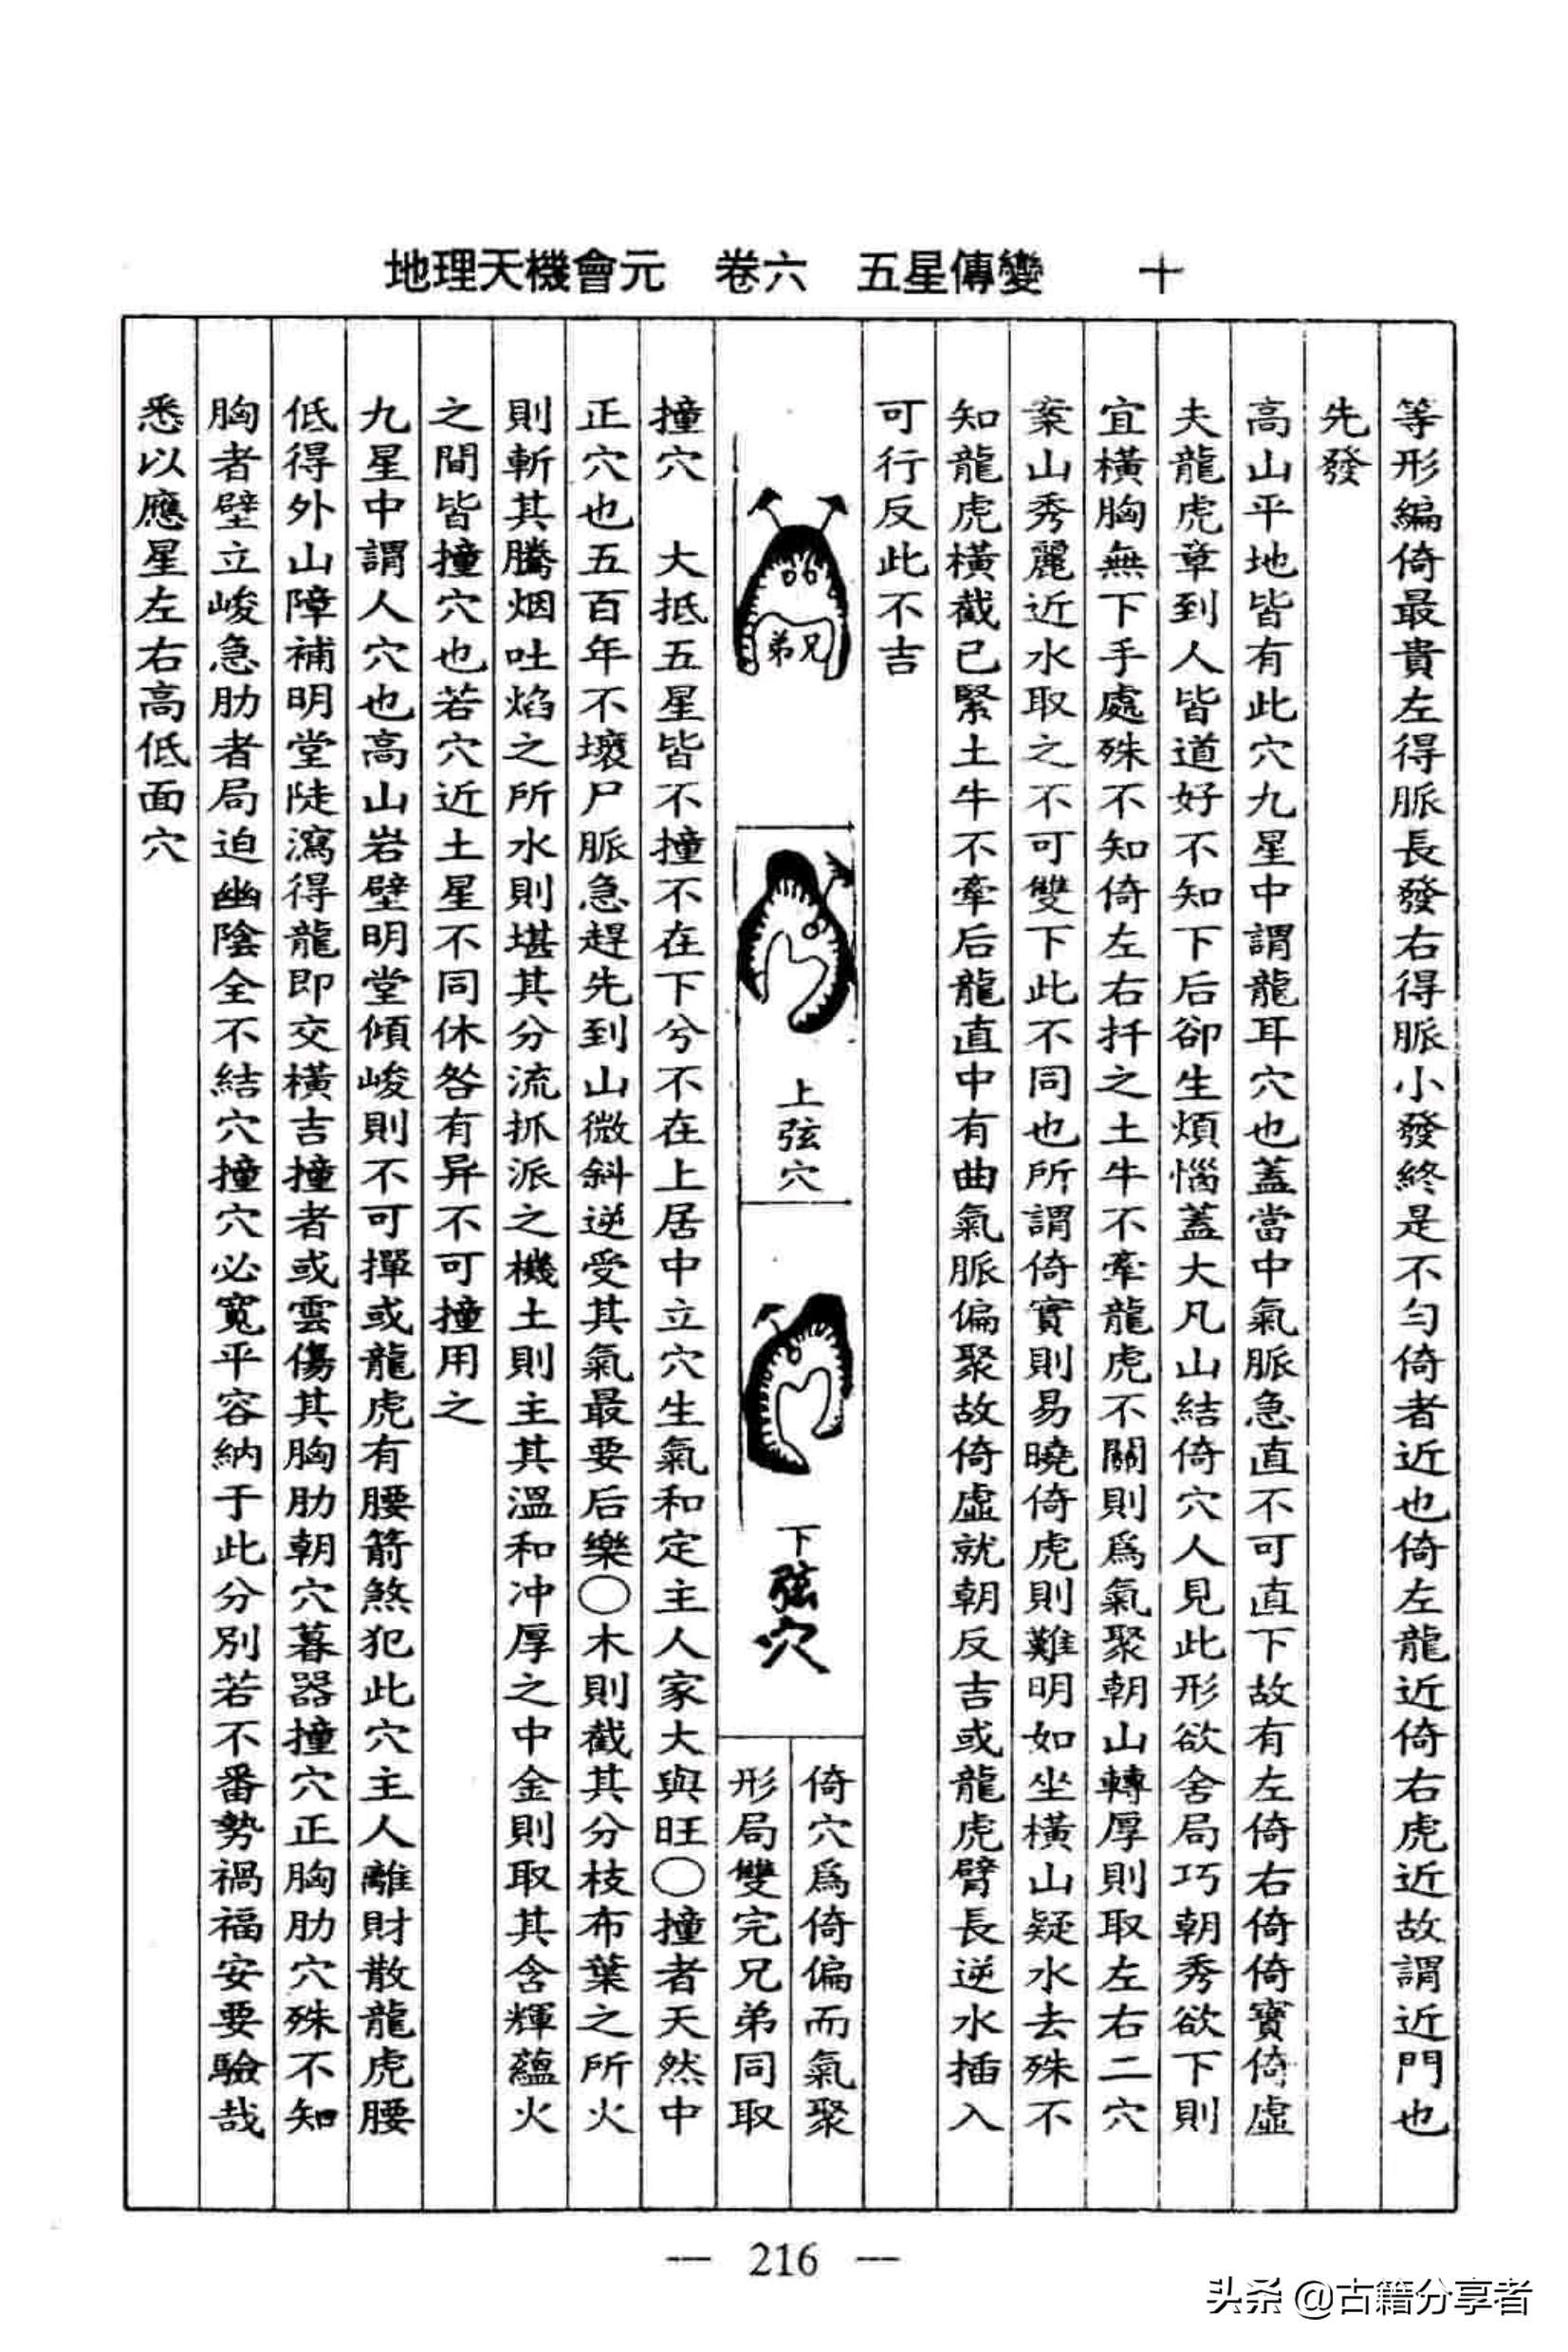 地理天機會元　卷六　五星傳變　十
等形編倚最貴左得脈長發右得脈小發終是不勻倚者近也倚左龍近倚右虎近故謂近門也
先發
高山平地皆有此穴九星中謂龍耳穴也蓋當中氣脈急直不可直下故有左倚右倚倚寶倚虛
夫龍虎章到人皆道好不知下后卻生煩惱蓋大凡山結倚穴人見此形欲舍局巧朝秀欲下則
宜橫胸無下手處殊不知倚左右扦之土牛不牽龍虎不關則爲氣聚朝山轉厚則取左右二穴
案山秀麗近水取之不可雙下此不同也所謂倚實則易曉倚虎則難明如坐橫山疑水去殊不
知龍虎橫截已緊土牛不牽后龍直中有曲氣脈偏聚故倚虛就朝反吉或龍虎臂長逆水插入
可行反此不吉
弟兄
上弦穴
下弦穴
倚穴爲倚偏而氣聚
形局雙完兄弟同取
撞穴　大抵五星皆不撞不在下兮不在上居中立穴生氣和定主人家大與旺○撞者天然中
正穴也五百年不壞尸脈急趕先到山微斜逆受其氣最要后樂○木則截其分枝布葉之所火
則斬其騰烟吐焰之所水則堪其分流抓派之機土則主其溫和冲厚之中金則取其含輝蘊火
之間皆撞穴也若穴近土星不同休咎有异不可撞用之
九星中謂人穴也高山岩壁明堂傾峻則不可撣或龍虎有腰箭煞犯此穴主人離財散龍虎腰
低得外山障補明堂陡瀉得龍即交橫吉撞者或雲傷其胸肋朝穴暮器撞穴正胸肋穴殊不知
胸者壁立峻急肋者局迫幽陰全不結穴撞穴必寬平容納于此分別若不番勢禍福安要驗哉
悉以應星左右高低面穴
— 216 —
头条 @古籍分享者